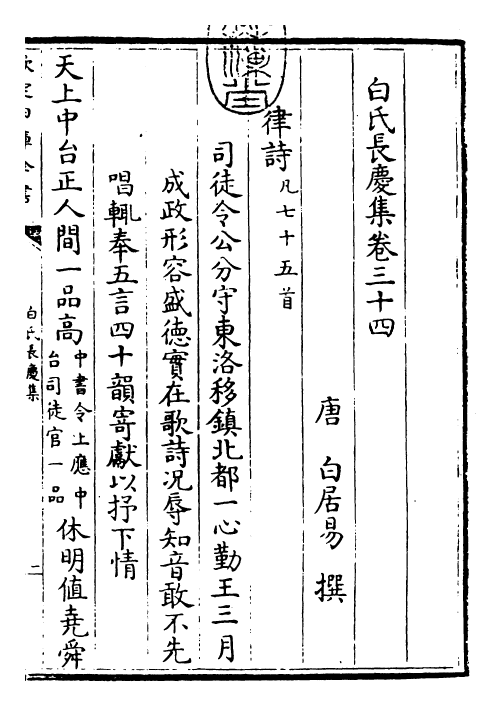 白氏長慶集卷三十四
唐 白居易 撰
律詩凡七十五首
司徒令公分守東洛移鎮北都一心勤王三月
成政形容盛徳實在歌詩況辱知音敢不先
唱輒奉五言四十韻寄獻以抒下情
天上中台正人間一品高中書令上應中台司徒官一品休明值堯舜
白氏長慶集
二